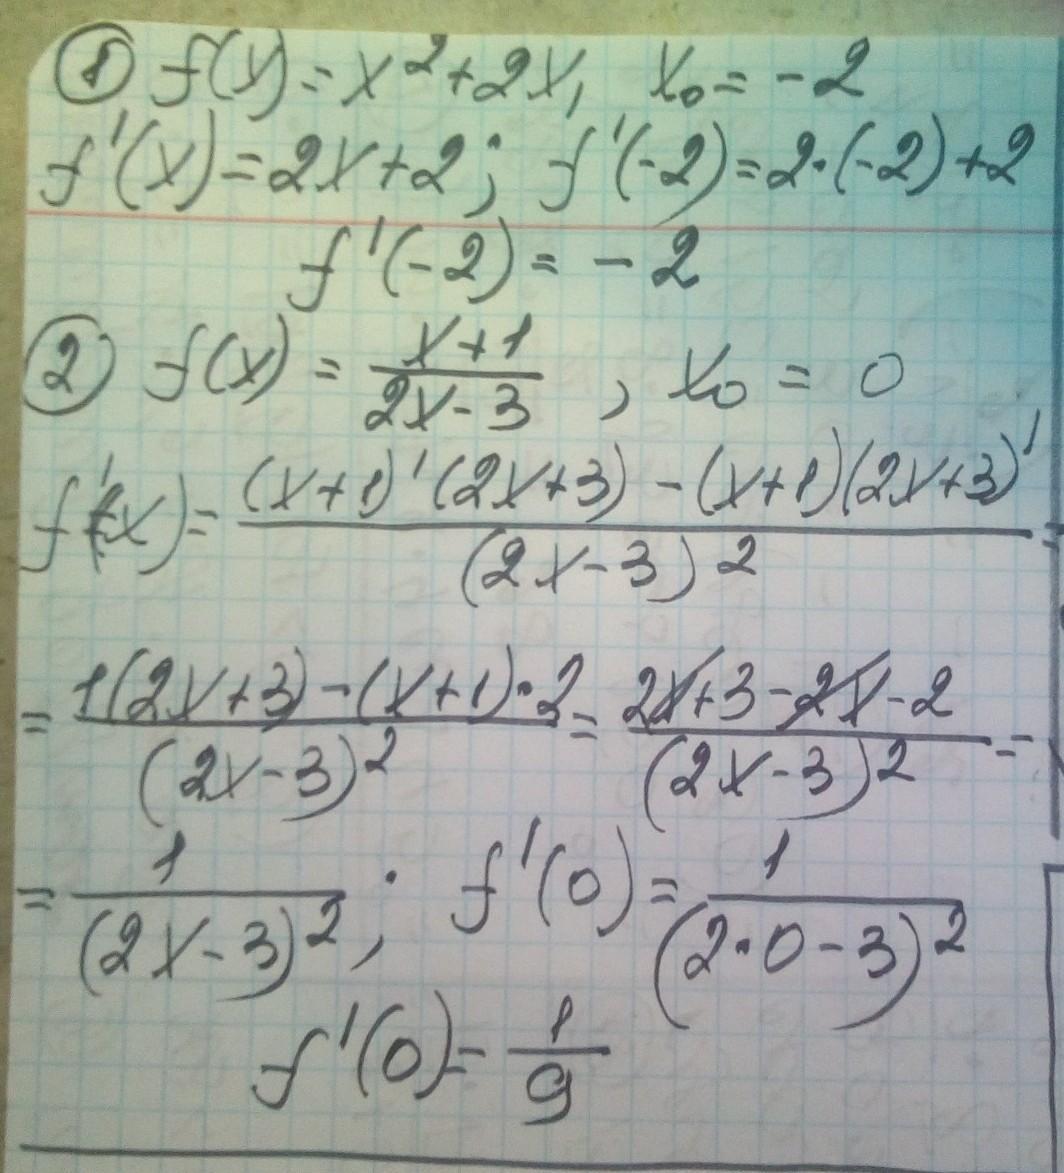 ① f(x) = x² + 2x, x₀ = -2
f'(x) = 2x + 2; f'(-2) = 2·(-2) + 2
f'(-2) = -2
② f(x) = (x+1)/(2x-3), x₀ = 0
f'(x) = ((x+1)'(2x+3) - (x+1)(2x+3)')/(2x-3)² =
= (1(2x+3) - (x+1)·2)/(2x-3)² = (2x+3-2x-2)/(2x-3)² =
= 1/(2x-3)²; f'(0) = 1/(2·0-3)²
f'(0) = 1/9